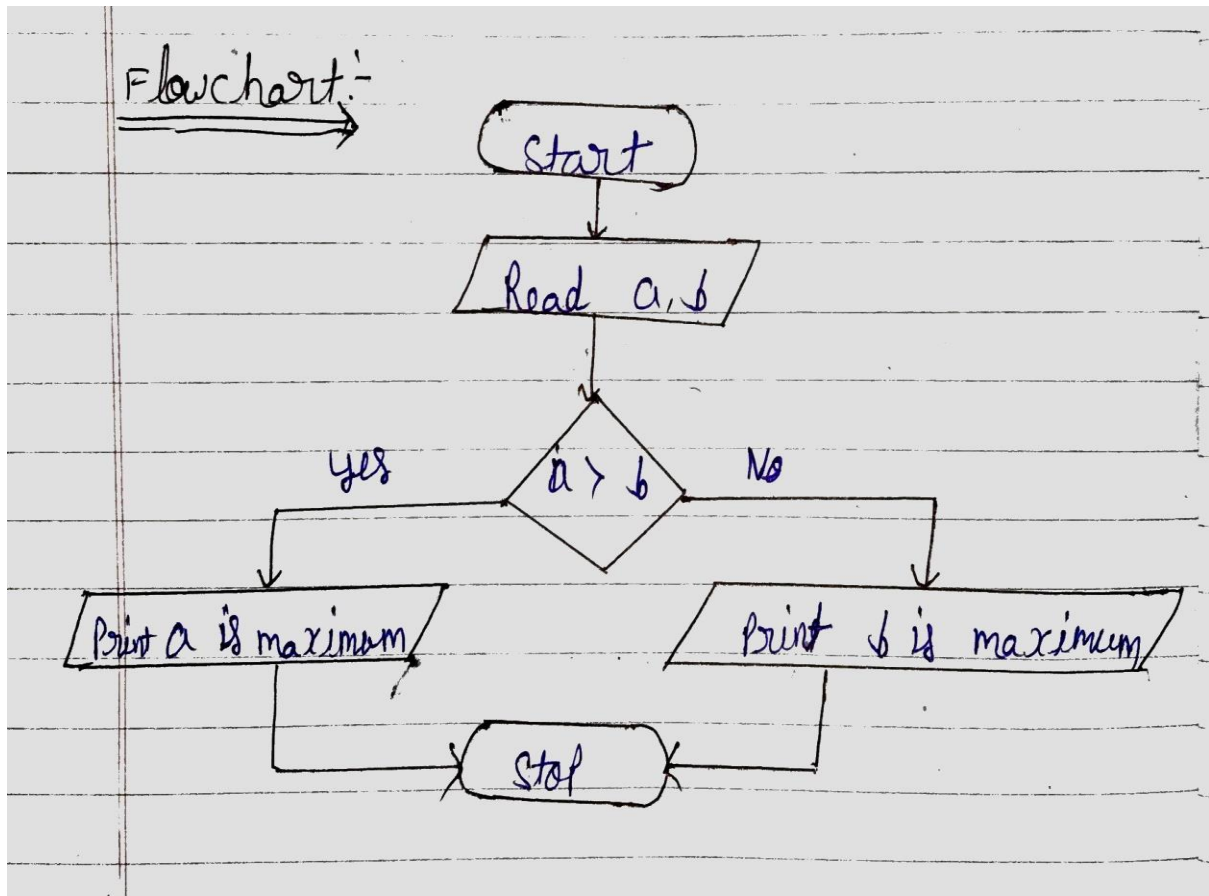 Flowchart:-
Start
Read a, b
a > b
yes
No
Print a is maximum
Print b is maximum
Stop